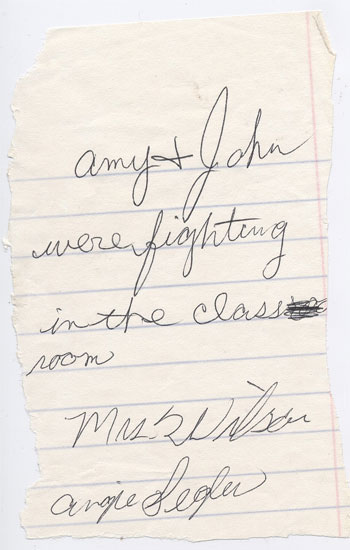 amy + John
were fighting
in the class
room
Mrs. Wilson
angie Segler